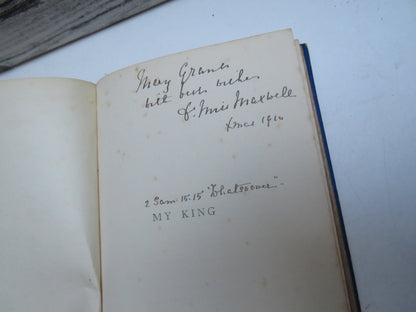 Mary Grant
with best wishes
Maxwell
Xmas 1910
2 Sam. 15.15 "Whatsoever".
MY KING